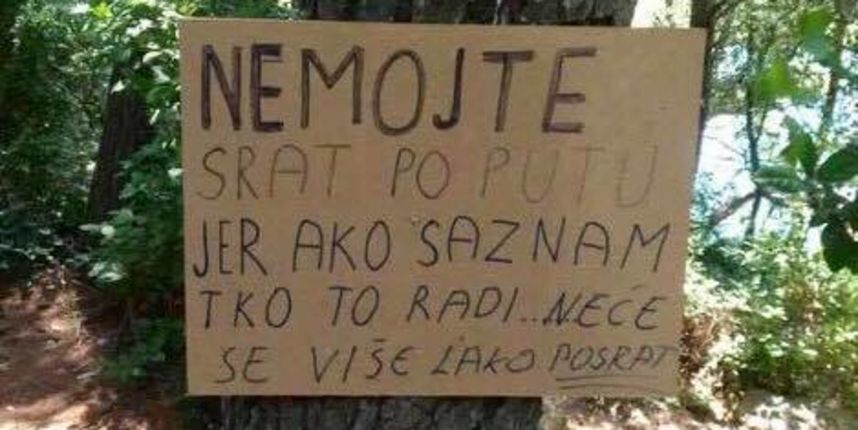 NEMOJTE
SRAT PO PUTU
JER AKO SAZNAM
TKO TO RADI..NEĆE
SE VIŠE LAKO POSRAT